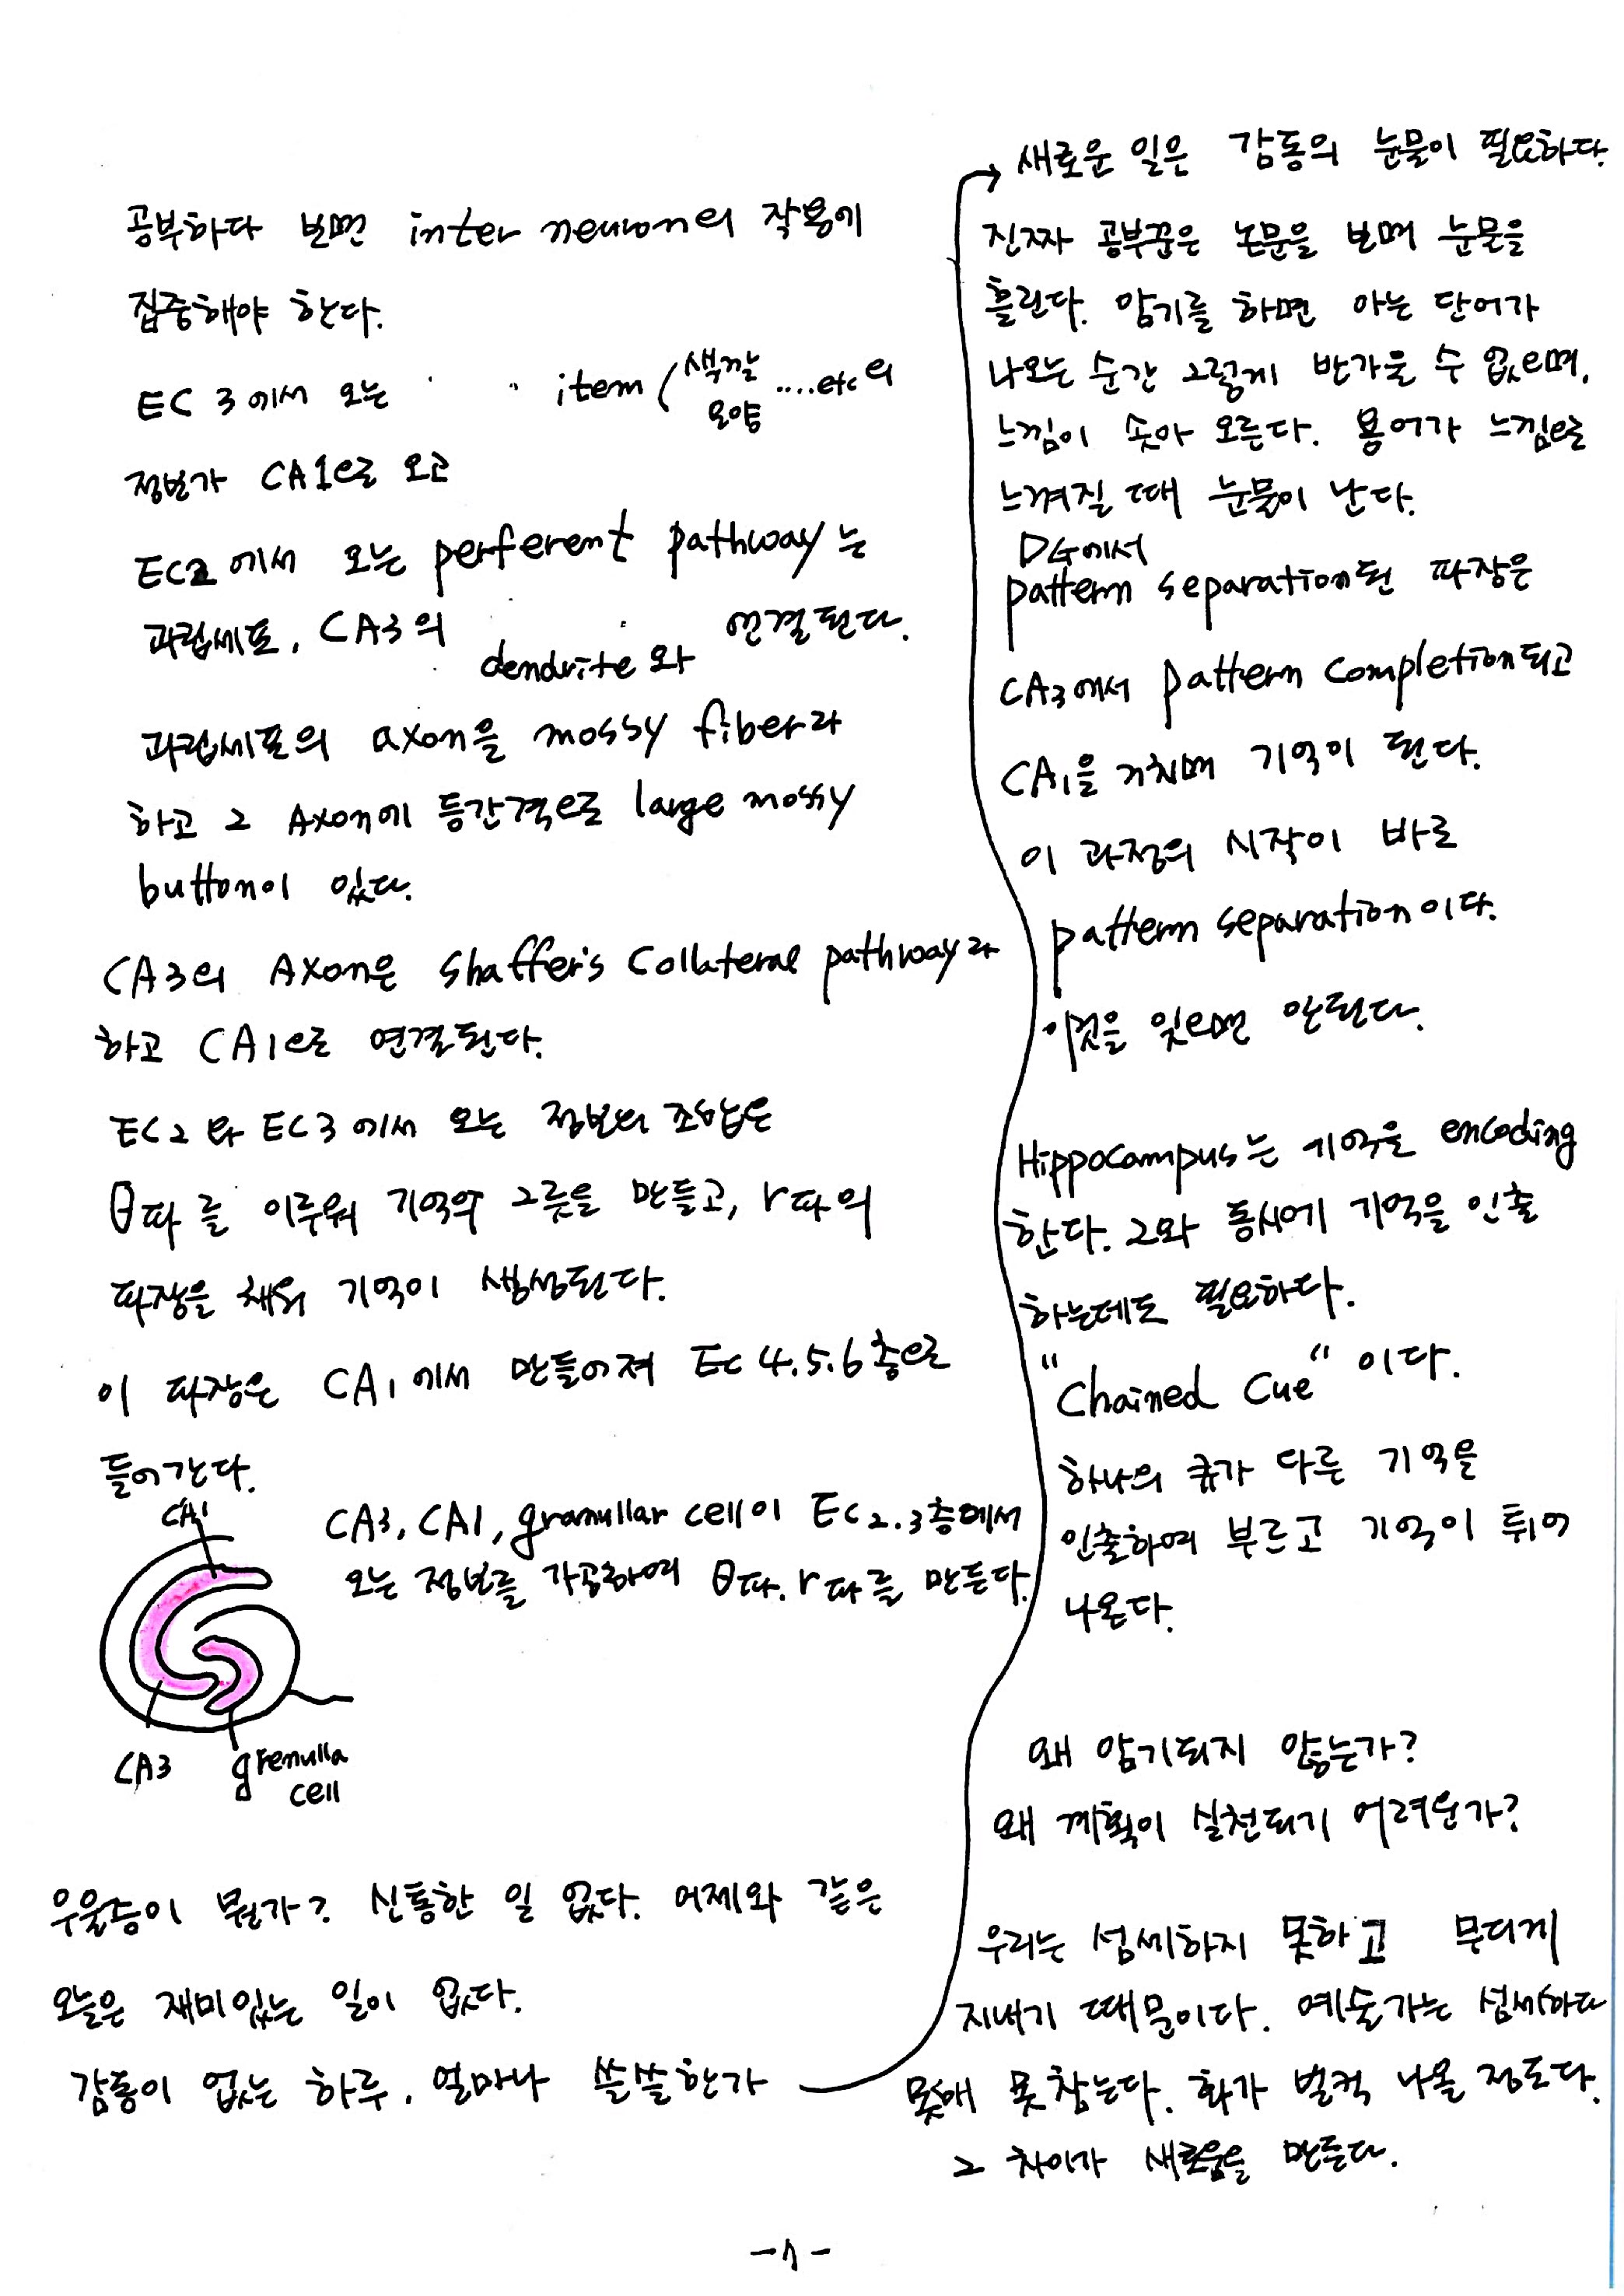 공부하다 보면 inter neuron의 작용에
집중해야 한다.
EC 3에서 오는 item (색깔 모양 ....etc의
정보가 CA1으로 오고
EC2에서 오는 perferent pathway는
과립세포, CA3의 dendrite와 연결된다.
과립세포의 axon을 mossy fiber라
하고 그 Axon에 등간격으로 large mossy
button이 있다.
CA3의 Axon은 shaffer's Collateral pathway라
하고 CA1으로 연결된다.
EC2와 EC3에서 오는 정보의 조합은
θ파를 이루워 기억의 그릇을 만들고, r파의
파장을 채워 기억이 생성된다.
이 파장은 CA1에서 만들어져 EC 4.5.6층으로
들어간다.
CA1
CA3, CA1, granullar cell이 EC2.3층에서
오는 정보를 가공하여 θ파. r파를 만든다.
CA3
grenulla
cell
우울증이 뭔가? 신통한 일 없다. 어제와 같은
오늘은 재미있는 일이 없다.
감동이 없는 하루. 얼마나 쓸쓸한가
새로운 일은 감동의 눈물이 필요하다.
진짜 공부꾼은 논문을 보며 눈물을
흘린다. 암기를 하면 아는 단어가
나오는 순간 그렇게 반가울 수 없으며,
느낌이 솟아 오른다. 용어가 느낌으로
느껴질 때 눈물이 난다.
DG에서
pattern separation된 파장은
CA3에서 pattern completion되고
CA1을 거치며 기억이 된다.
이 과정의 시작이 바로
pattern separation이다.
이것을 잊으면 안된다.
Hippocampus는 기억을 encoding
한다. 그와 동시에 기억을 인출
하는데도 필요하다.
"Chained Cue" 이다.
하나의 큐가 다른 기억을
인출하여 부르고 기억이 튀어
나온다.
왜 암기되지 않는가?
왜 계획이 실천되기 어려운가?
우리는 섬세하지 못하고 무디게
지내기 때문이다. 예술가는 섬세하다
못해 못참는다. 화가 벌컥 나올 정도다.
그 차이가 새로움을 만든다.
-1-